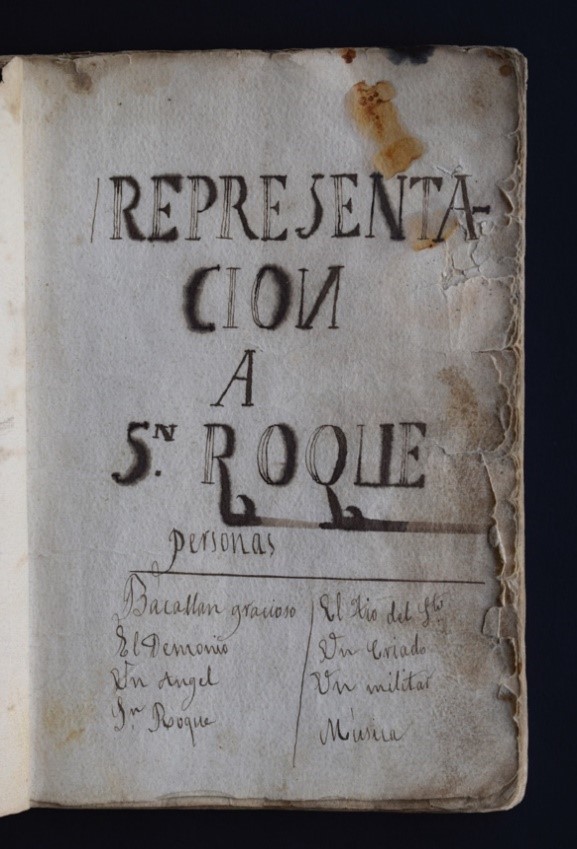 REPRESENTA-
CION
A
S.N ROQUE
personas
Bacallan gracioso
El Demonio
Un Angel
Sn. Roque
El Tio del Sto
Un Criado
Un militar
Música